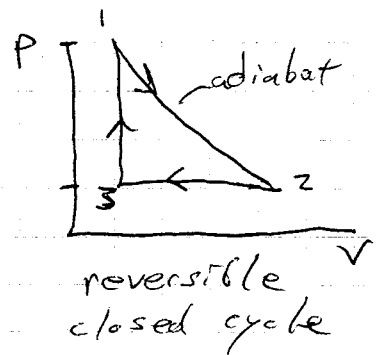 1
P
adiabat
3
2
V
reversible
closed cycle